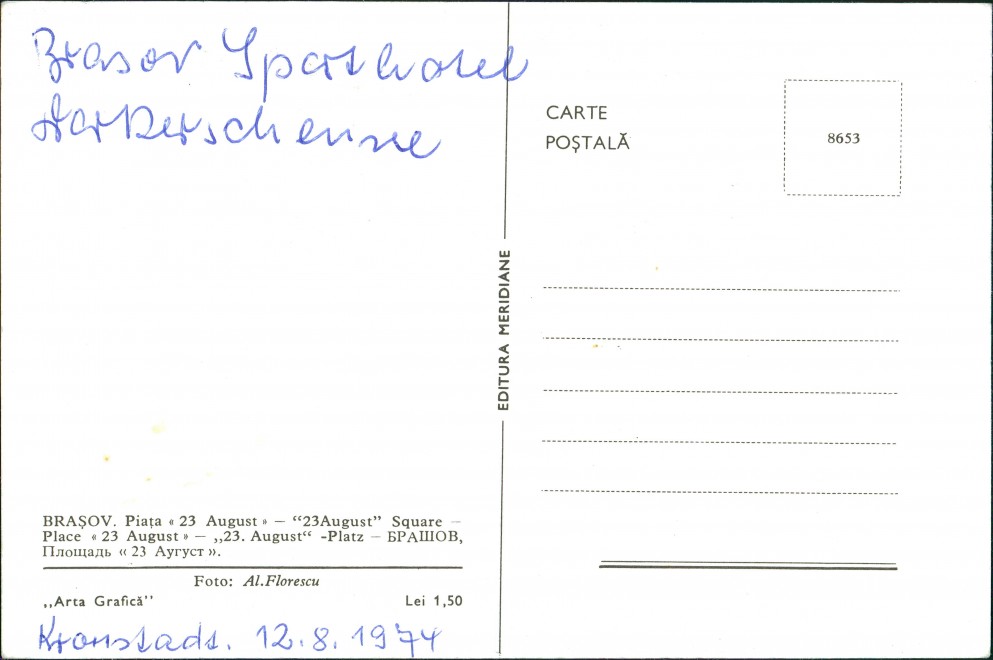 Brasov Sporthotel
CARTE
POŞTALĂ
8653
EDITURA MERIDIANE
BRAŞOV. Piaţa « 23 August » — “23August” Square —
Place « 23 August » — „23. August“ -Platz — БРАШОВ,
Площадь « 23 Аугуст ».
Foto: Al.Florescu
„Arta Grafică’’ Lei 1,50
Kronstadt. 12.8.1974